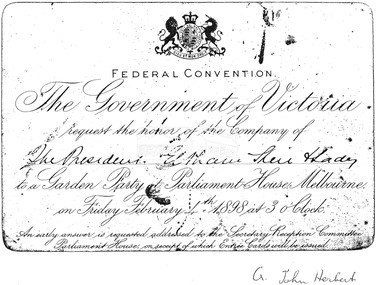 FEDERAL CONVENTION.
The Government of Victoria
request the honor of the Company of
The President
to a Garden Party at Parliament House, Melbourne,
on Friday February 4th 1898 at 3 o'Clock.
An early answer is requested addressed to the Secretary Reception Committee
Parliament House, on receipt of which Entrée Cards will be issued.
G. John Herbert